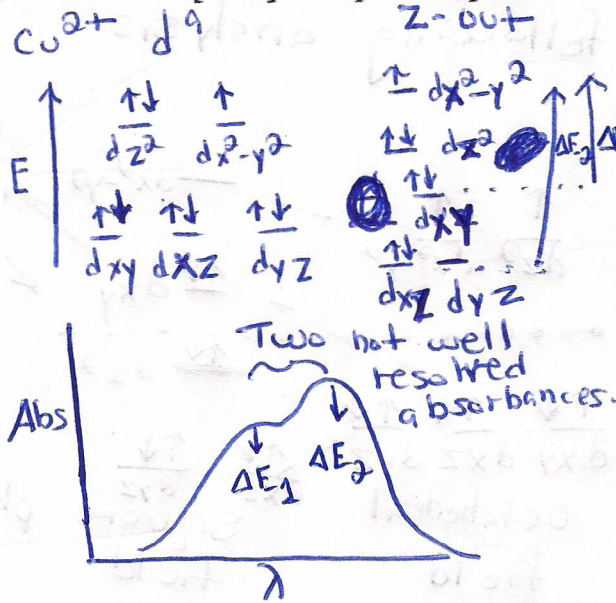 Cu²⁺ d⁹
z-out
E
↑↓ ↑
dz² dx²-y²
↑↓ ↑↓ ↑↓
dxy dxz dyz
↑ dx²-y²
↑↓ dz²
↑↓
dxy
↑↓
dxz dyz
ΔE₂ Δ
Two not well
resolved
absorbances.
Abs
ΔE₁ ΔE₂
λ